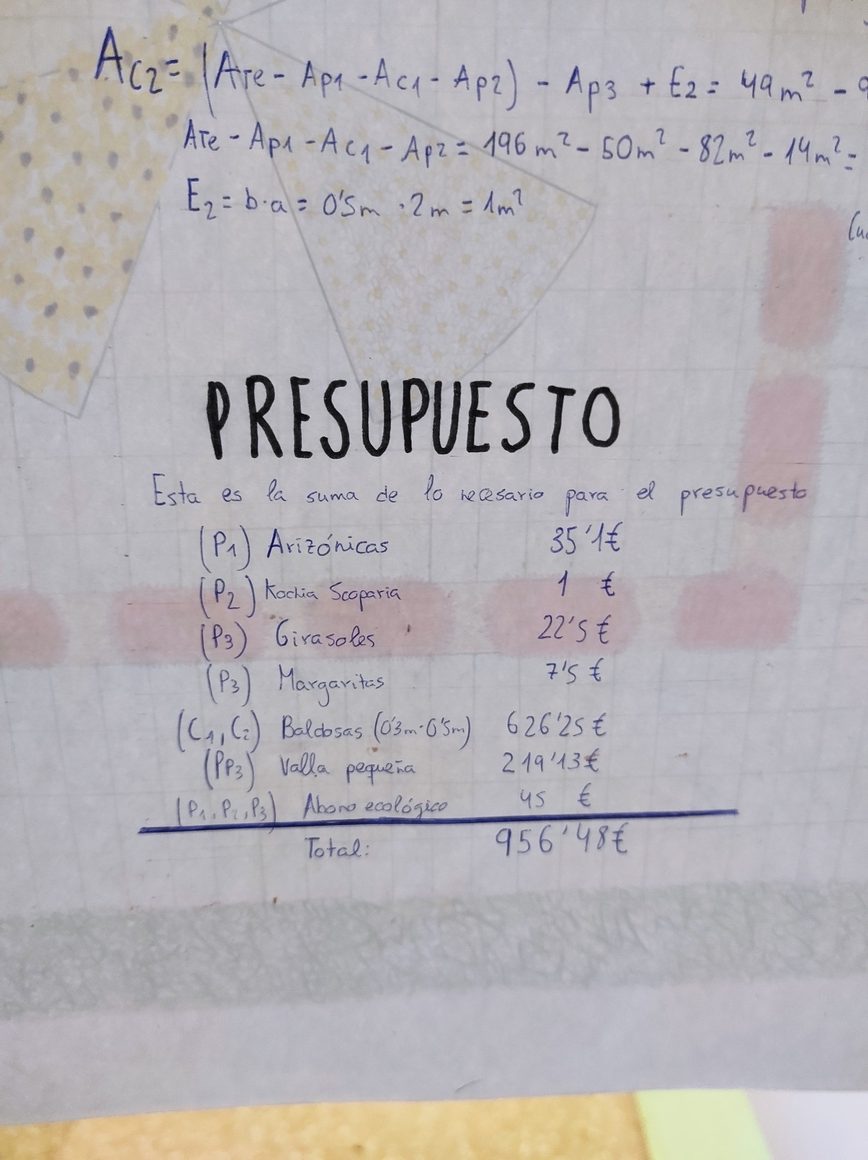 AC2 = (ATe - Ap1 - Ac1 - Ap2) - Ap3 + E2 = 49m² -
ATe - Ap1 - Ac1 - Ap2 = 196m² - 50m² - 82m² - 14m² =
E2 = b·a = 0'5m · 2m = 1m²
PRESUPUESTO
Esta es la suma de lo necesario para el presupuesto
(P1) Arizónicas 35'1€
(P2) Kochia Scoparia 1 €
(P3) Girasoles 22'5 €
(P3) Margaritas 7'5 €
(C1, C2) Baldosas (0'3m·0'5m) 626'25 €
(PP3) Valla pequeña 219'13€
(P1, P2, P3) Abono ecológico 45 €
Total: 956'48€